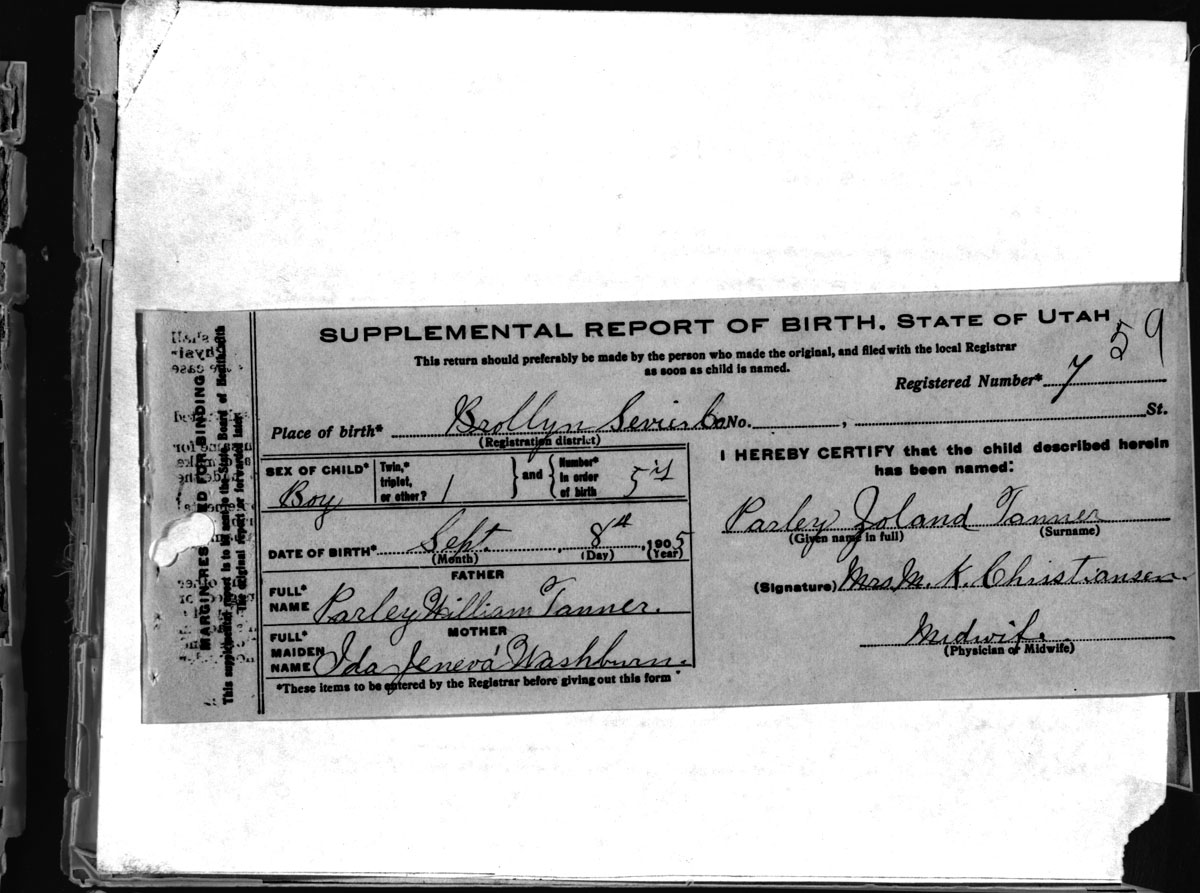 SUPPLEMENTAL REPORT OF BIRTH. STATE OF UTAH
59
This return should preferably be made by the person who made the original, and filed with the local Registrar
as soon as child is named.
Registered Number* 7
Place of birth* Brollyn Sevier Co No. , St.
(Registration district)
SEX OF CHILD* Boy
Twin,* triplet, or other? 1 and Number* in order of birth 5
DATE OF BIRTH* Sept. , 8th , 1905
(Month) (Day) (Year)
FATHER
FULL* NAME Parley William Tanner.
MOTHER
FULL* MAIDEN NAME Ida Jenevá Washburn.
*These items to be entered by the Registrar before giving out this form
I HEREBY CERTIFY that the child described herein
has been named:
Parley Zoland Tanner
(Given name in full) (Surname)
(Signature) Mrs M. K. Christiansen.
Midwife.
(Physician or Midwife)
MARGIN RES ED FOR BINDING
This supplemental report is to be sent to the State Board of Health with
the original report or forwarded later